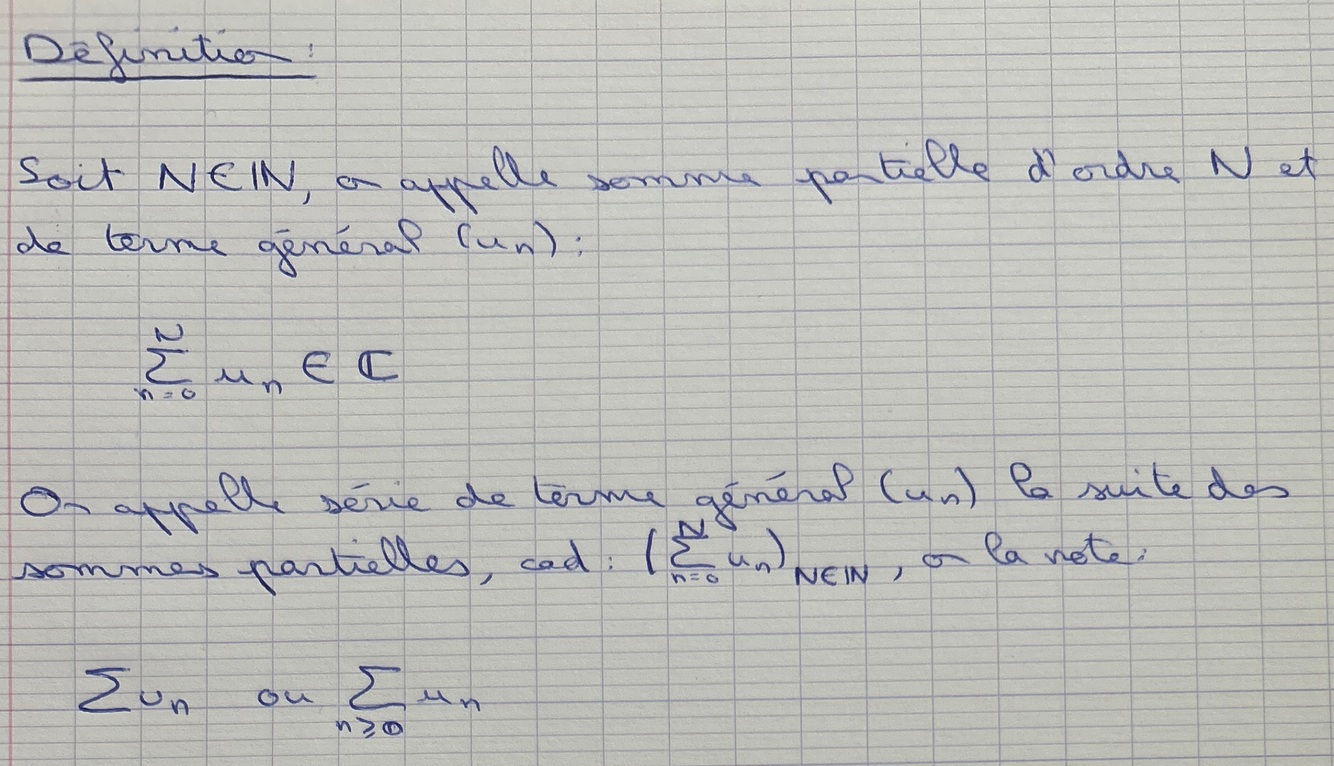 Définition :
Soit N∈ℕ, on appelle somme partielle d'ordre N et
de terme général (un) :
∑_{n=0}^{N} un ∈ ℂ
On appelle série de terme général (un) la suite des
sommes partielles, cad : (∑_{n=0}^{N} un)_{N∈ℕ}, on la note :
∑un ou ∑_{n≥0} un